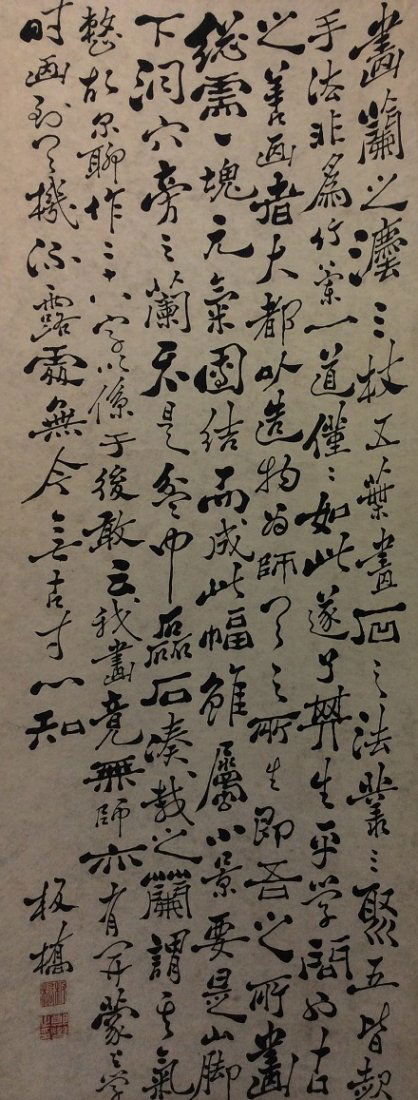 畫蘭之灋三枝五葉畫石之法叢三聚五皆起
手法非為竹蘭一道僅〻如此遂了其生平學問也古
之善画者大都以造物為師天之所生即吾之所畫
總需一塊元氣團結而成此幅雖屬小景要是山脚
下洞穴旁之蘭不是盆中磊石湊栽之蘭謂其氣
整故尔聊作二十八字以係于後敢云我畫竟無師亦有開蒙上學
时画到天機流露處無今無古寸心知
板橋